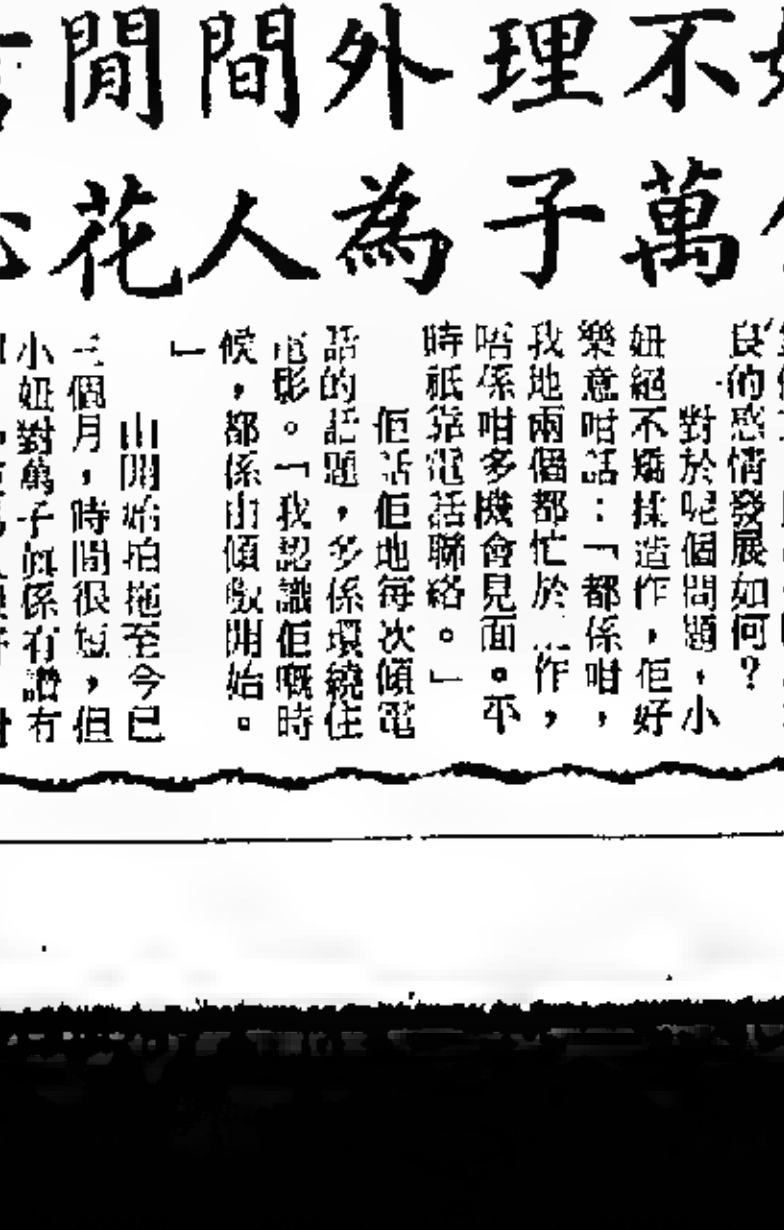 不理外間閒
萬子為人花
良的感情發展如何？
對於呢個問題，小
妞絕不矯揉造作，佢好
樂意咁話：「都係咁，
我地兩個都忙於工作，
唔係咁多機會見面。平
時祇靠電話聯絡。」
佢話佢地每次傾電
話的話題，多係環繞住
電影。「我認識佢嘅時
候，都係由傾戲開始。
」
由開始拍拖至今已
三個月，時間很短，但
小妞對萬子眞係有讚冇